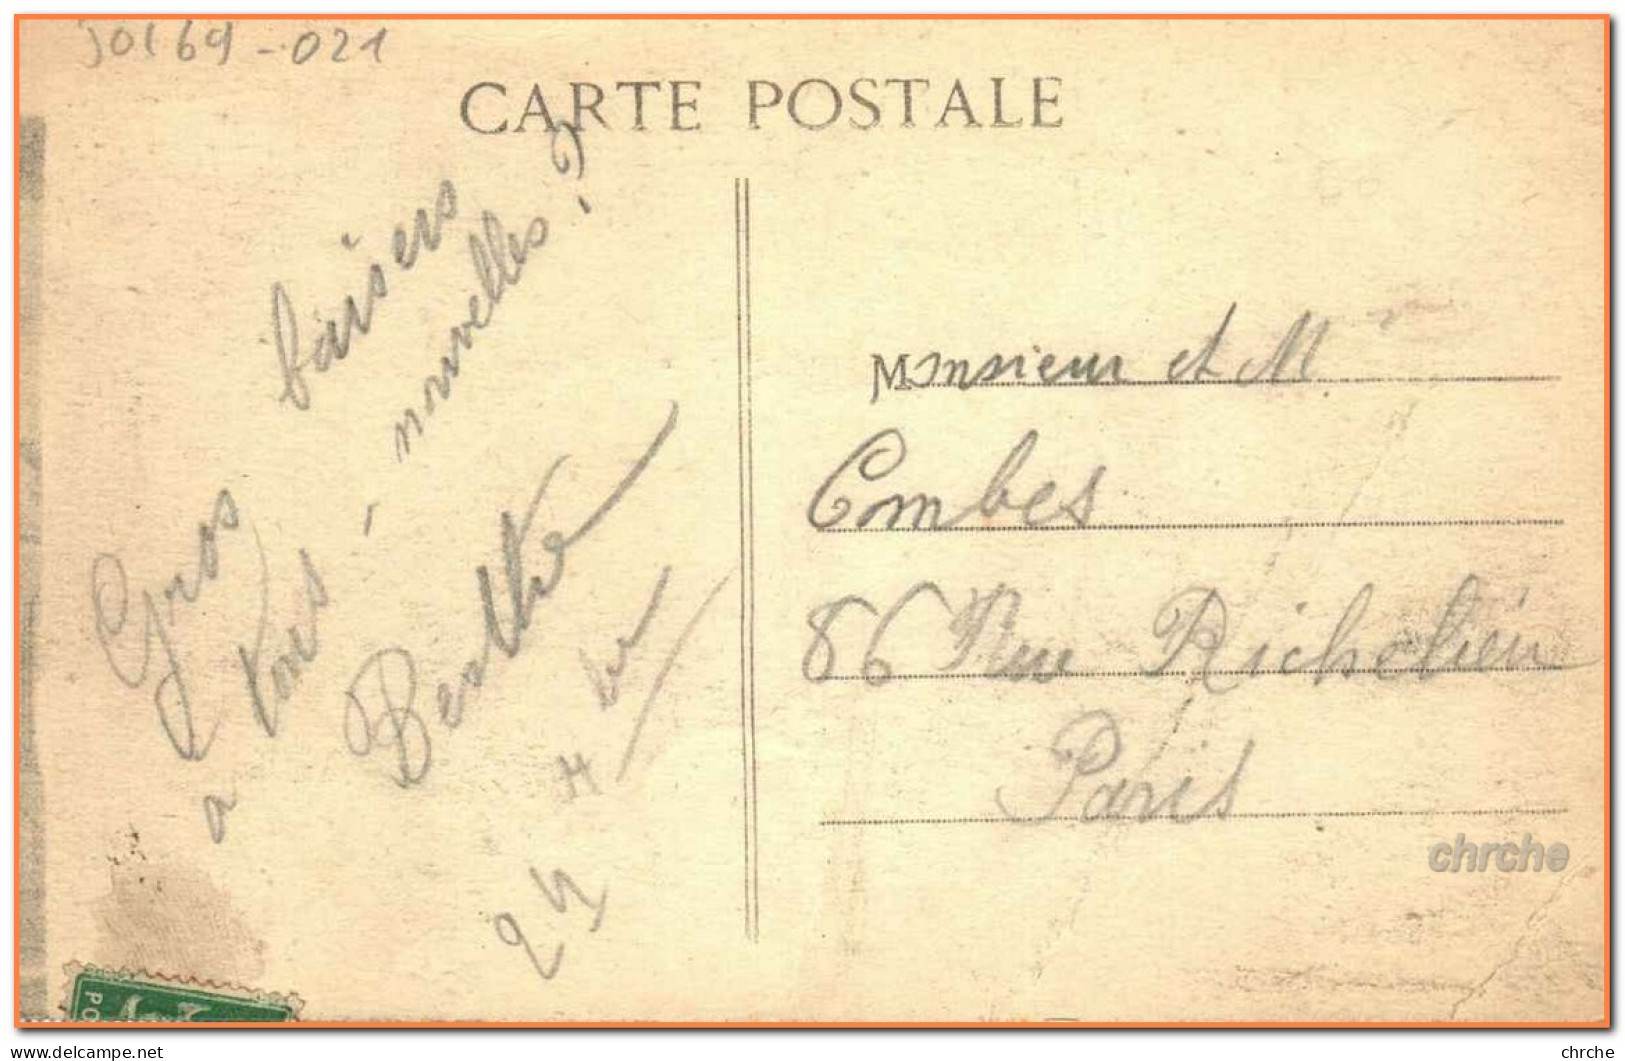 JOI69-021
CARTE POSTALE
Gros baisers
a tous - nouvelles ?
Berthe
Monsieur et M
Combes
86 Rue Richelieu
Paris
chrche
www.delcampe.net
chrche